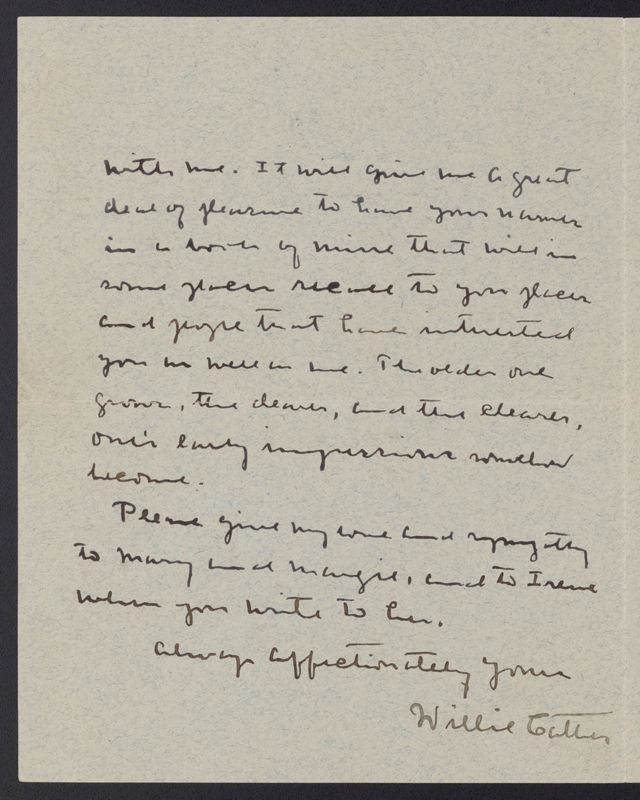 with me. It will give me a great
deal of pleasure to have your names
in a book of mine that will in
some places recall to you places
and people that have interested
you as well as me. The older one
grows, the dearer, and the clearer,
one's early impressions somehow
become.
Please give my love and sympathy
to Mary and Margie, and to Irene
when you write to her.
Always affectionately yours
Willie Cather